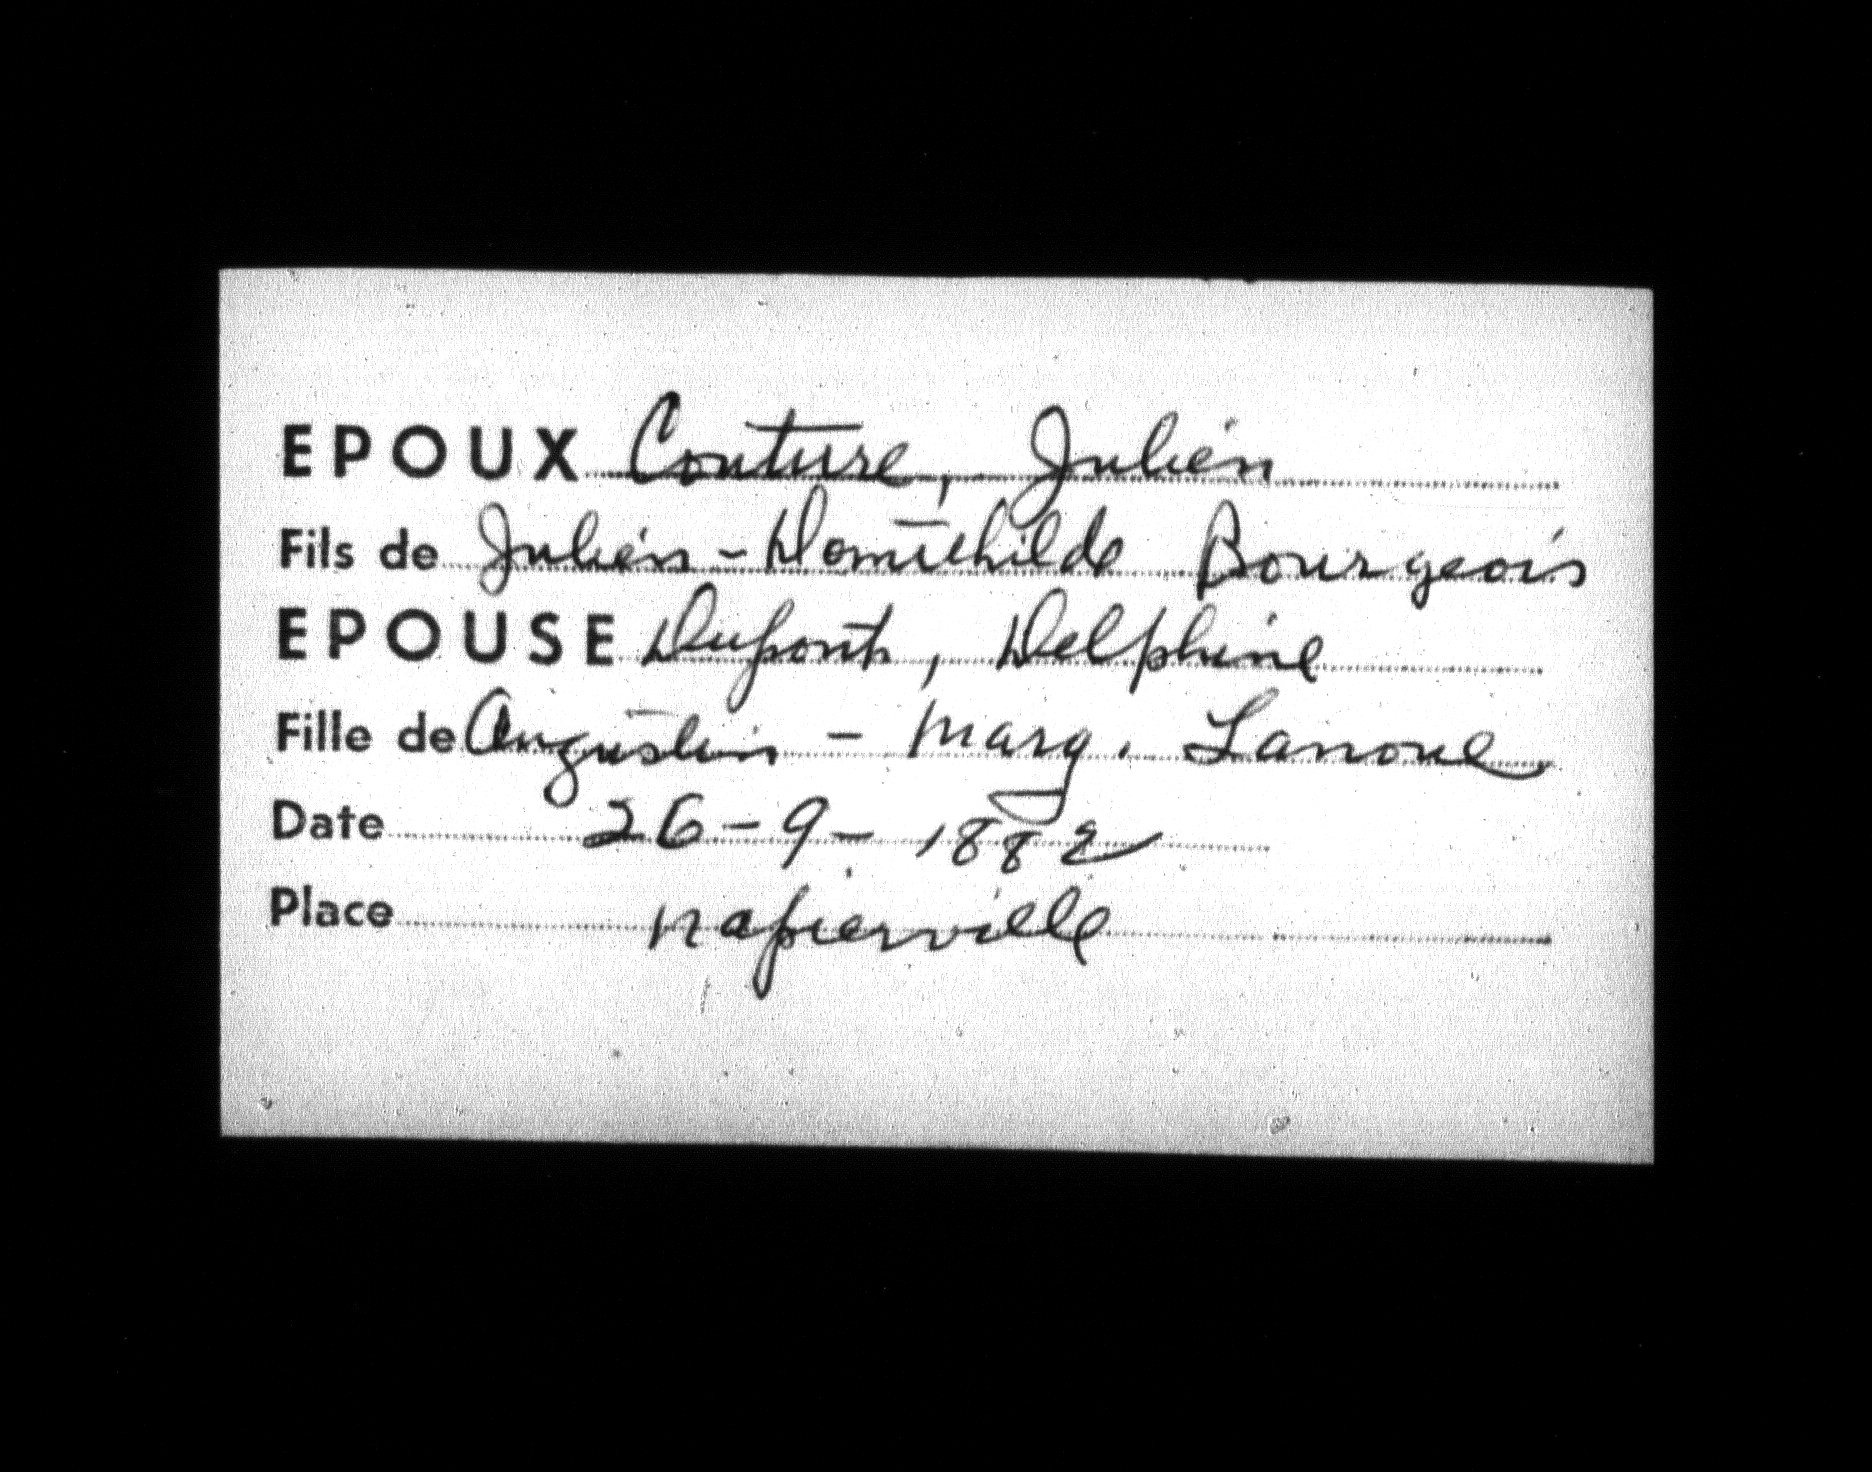 EPOUX Couture, Julien
Fils de Julien - Domithilde Bourgeois
EPOUSE Dupont, Delphine
Fille de Augustin - Marg. Lanoue
Date 26-9-1882
Place Napierville